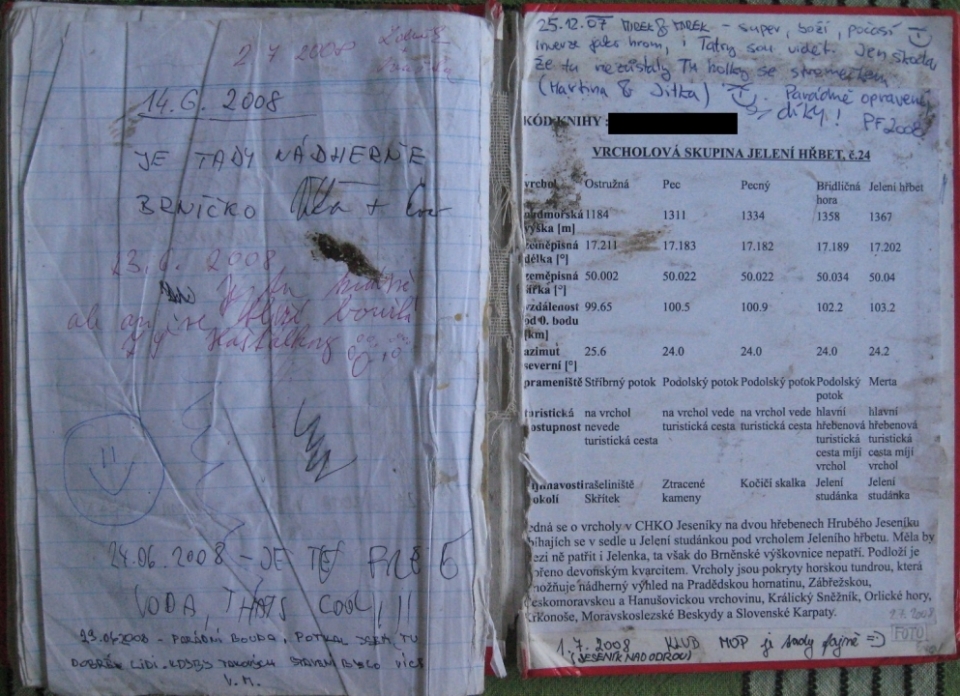 2 7 2008
14.6. 2008
JE TADY NÁDHERNĚ
BRNÍČKO
23.6. 2008
24.06.2008 - JE TU
VODA, THATS COOL!!!
29.06 2008 - POTKAL JSEM TU
LIDI. TAKOVÝCH BYLO VÍCE
25.12.07 MIREK & MAREK - super, boží, počasí
inverze jako hrom, i Tatry sou vidět. Jen škoda
že tu nezůstaly TM holky se stromečkem
(Martina & Jitka) Parádně opravený,
díky! PF2008
KÓD KNIHY :
VRCHOLOVÁ SKUPINA JELENÍ HŘBET, č.24
vrchol Ostružná Pec Pecný Břidličná hora Jelení hřbet
nadmořská výška [m] 1184 1311 1334 1358 1367
zeměpisná délka [°] 17.211 17.183 17.182 17.189 17.202
zeměpisná šířka [°] 50.002 50.022 50.022 50.034 50.04
vzdálenost od 0. bodu [km] 99.65 100.5 100.9 102.2 103.2
azimut severní [°] 25.6 24.0 24.0 24.0 24.2
prameniště Stříbrný potok Podolský potok Podolský potok Podolský potok Merta
turistická dostupnost na vrchol nevede turistická cesta na vrchol vede turistická cesta na vrchol vede turistická cesta hlavní hřebenová turistická cesta míjí vrchol hlavní hřebenová turistická cesta míjí vrchol
rašeliniště Skřítek Ztracené kameny Kočičí skalka Jelení studánka Jelení studánka
edná se o vrcholy v CHKO Jeseníky na dvou hřebenech Hrubého Jeseníku
bíhajích se v sedle u Jelení studánkou pod vrcholem Jeleního hřbetu. Měla by
ezi ně patřit i Jelenka, ta však do Brněnské výškovnice nepatří. Podloží je
ořeno devonským kvarcitem. Vrcholy jsou pokryty horskou tundrou, která
možňuje nádherný výhled na Pradědskou hornatinu, Zábřežskou,
eskomoravskou a Hanušovickou vrchovinu, Králický Sněžník, Orlické hory,
rkonoše, Moravskoslezské Beskydy a Slovenské Karpaty.
2.7. 2008
FOTO
1.7. 2008 KLUB MOP je tady fajně =)
(JESENÍK NAD ODROU)